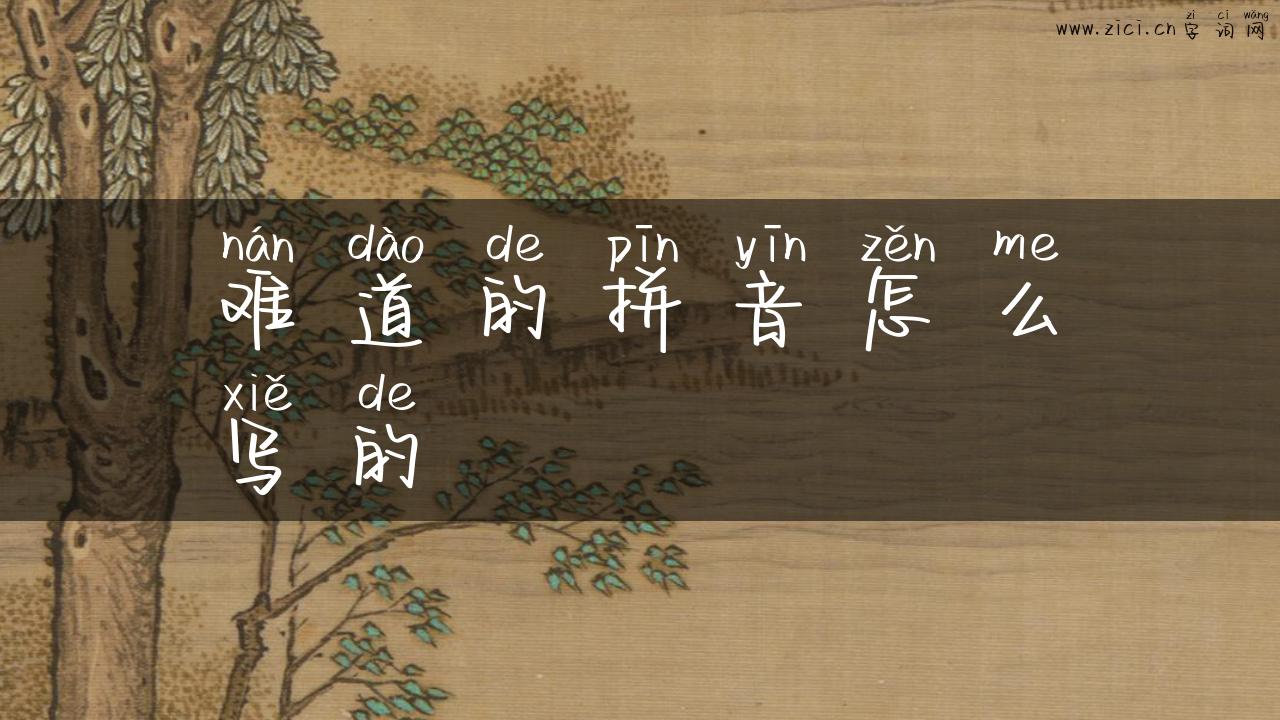 zì cí wǎng
www.zici.cn 字词网
nán dào de pīn yīn zěn me
难道的拼音怎么
xiě de
写的